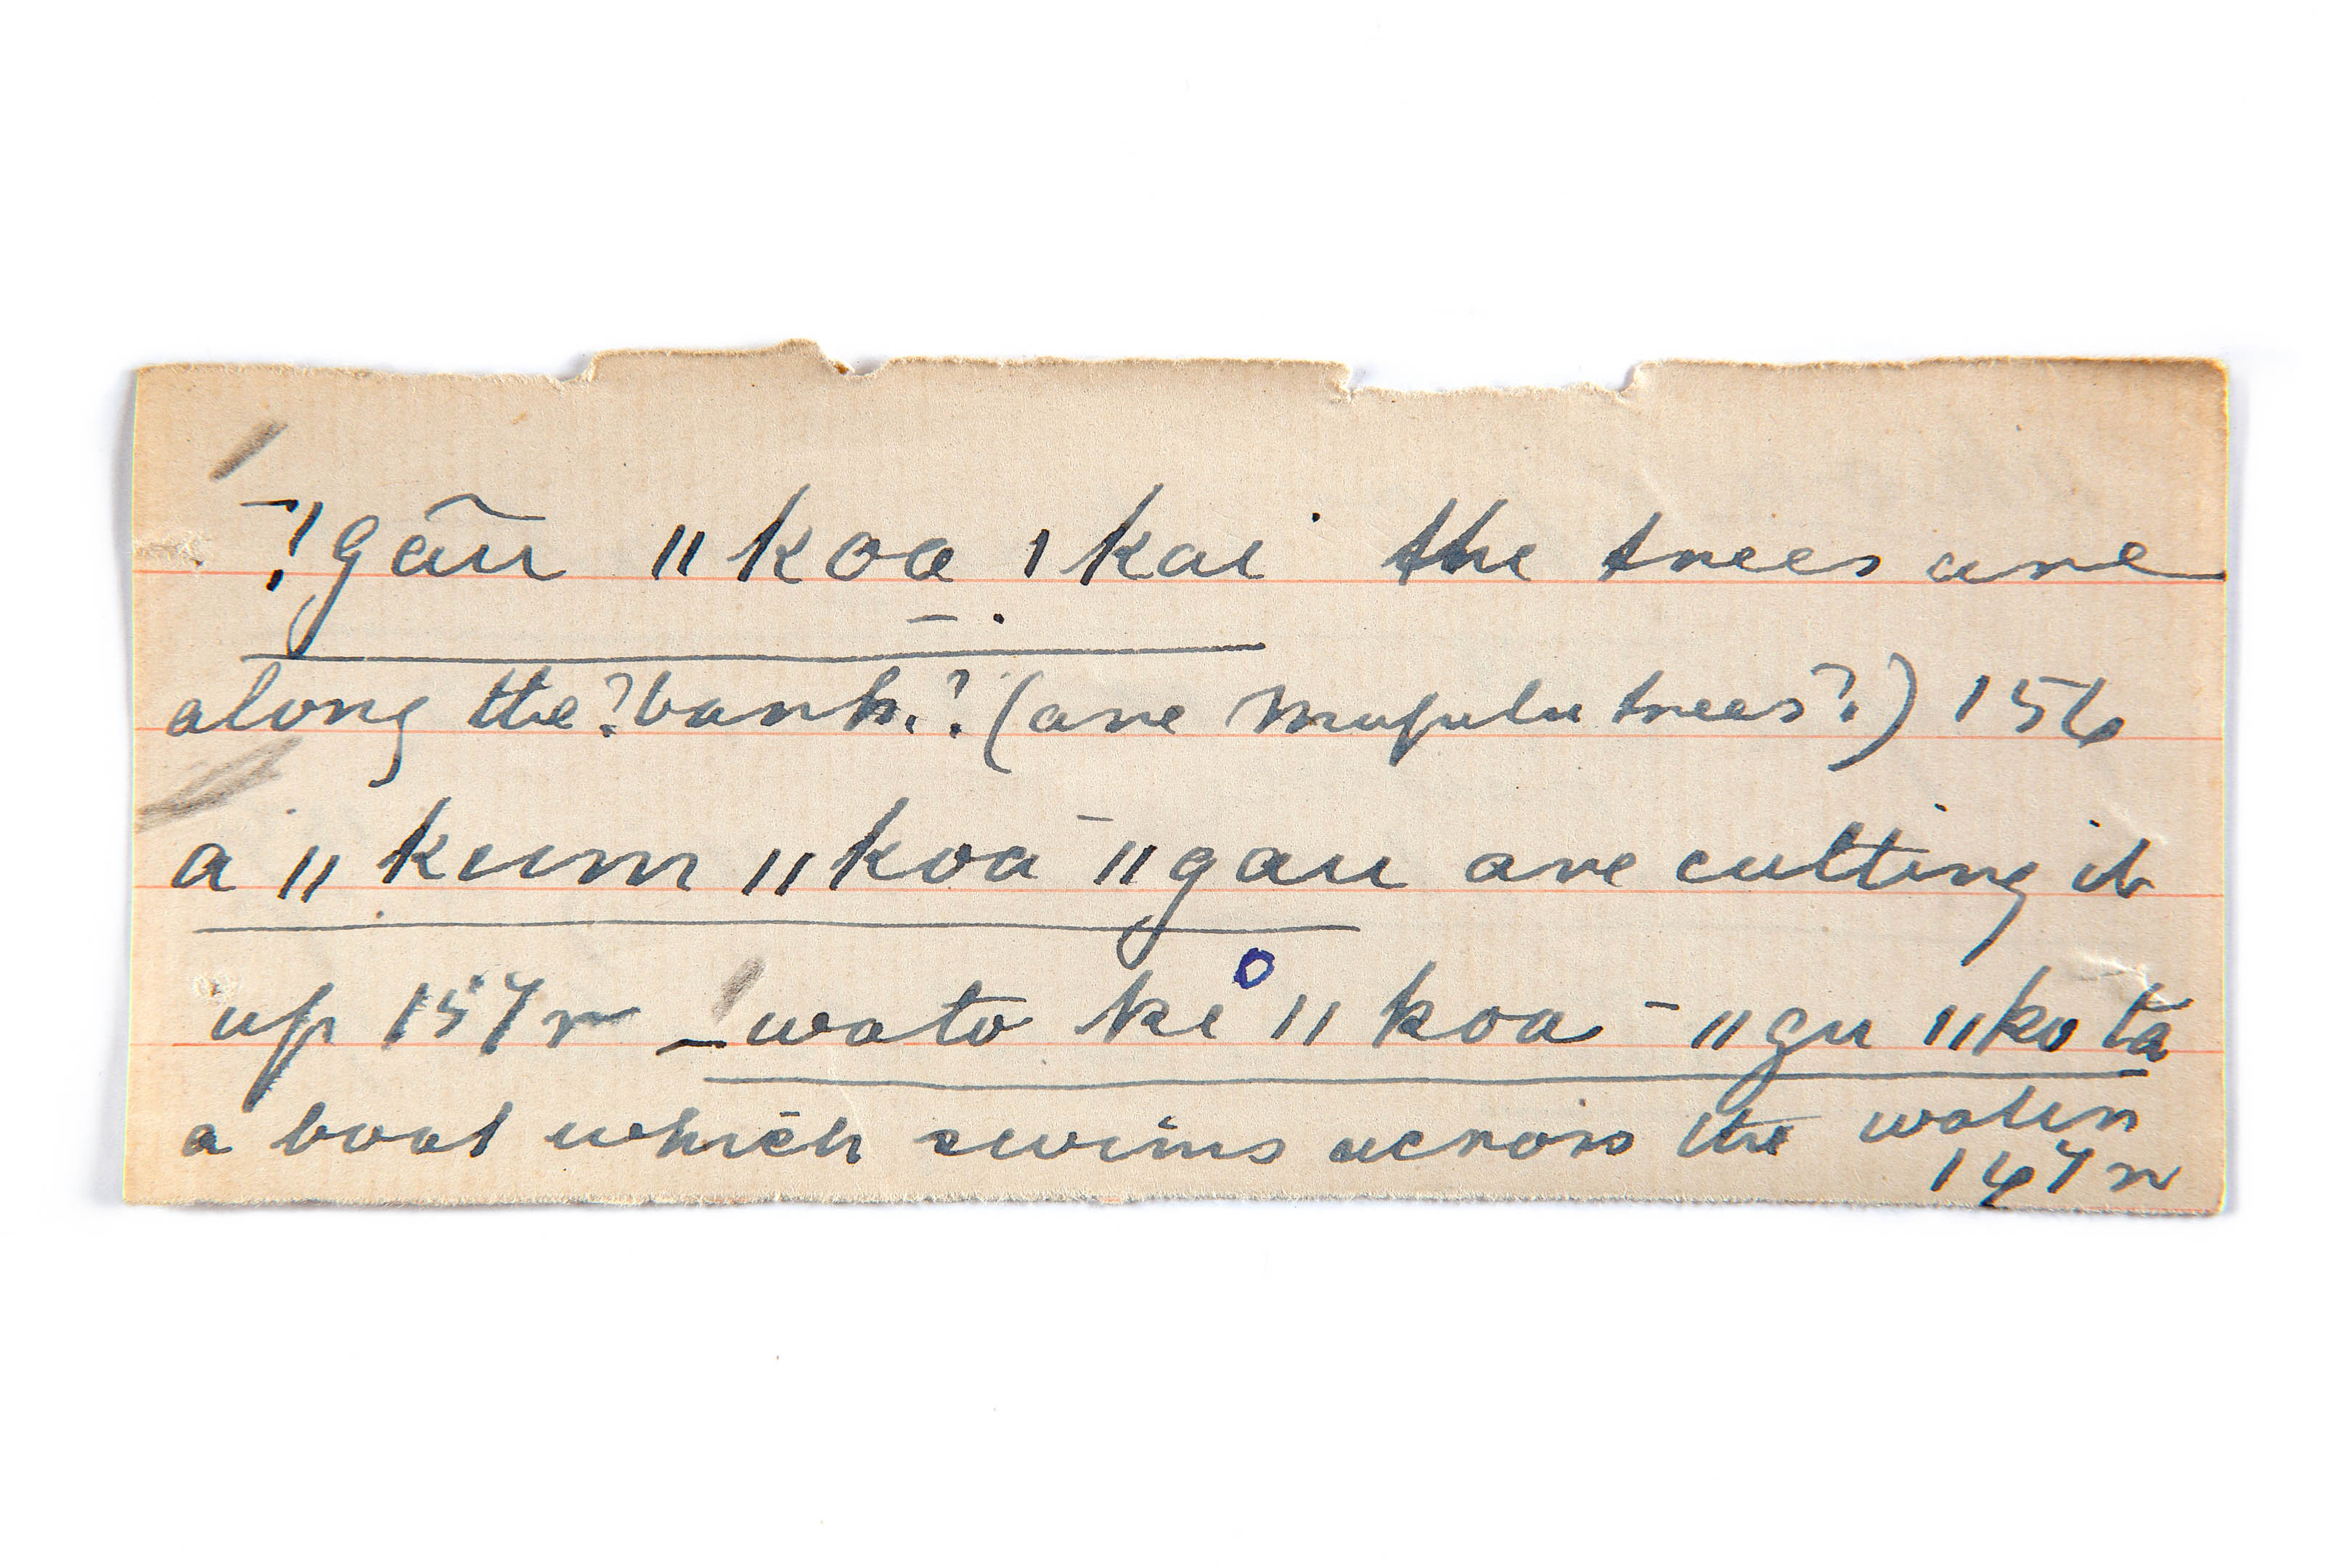 ⁻!gãũ ǁkoa̱ ǀkai the trees are
along the ? bank. ? (are Mupulu trees?) 156
a ǁkum ǁkoa ⁻ǁgau are cutting it
up 157r _wato ke° ǁkoa ⁻ǁgu ǁko ta
a boat which swims across the water
167r